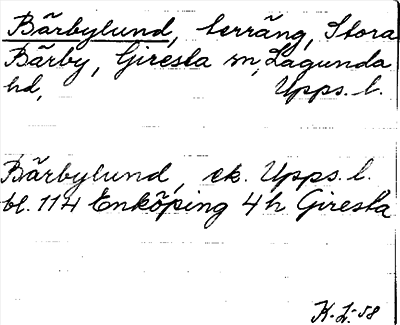 Bärbylund, terräng, Stora
Bärby, Giresta sn, Lagunda
hd, Upps. l.
Bärbylund, ek. Upps. l.
bl. 114 Enköping 4h Giresta
K.L. 58